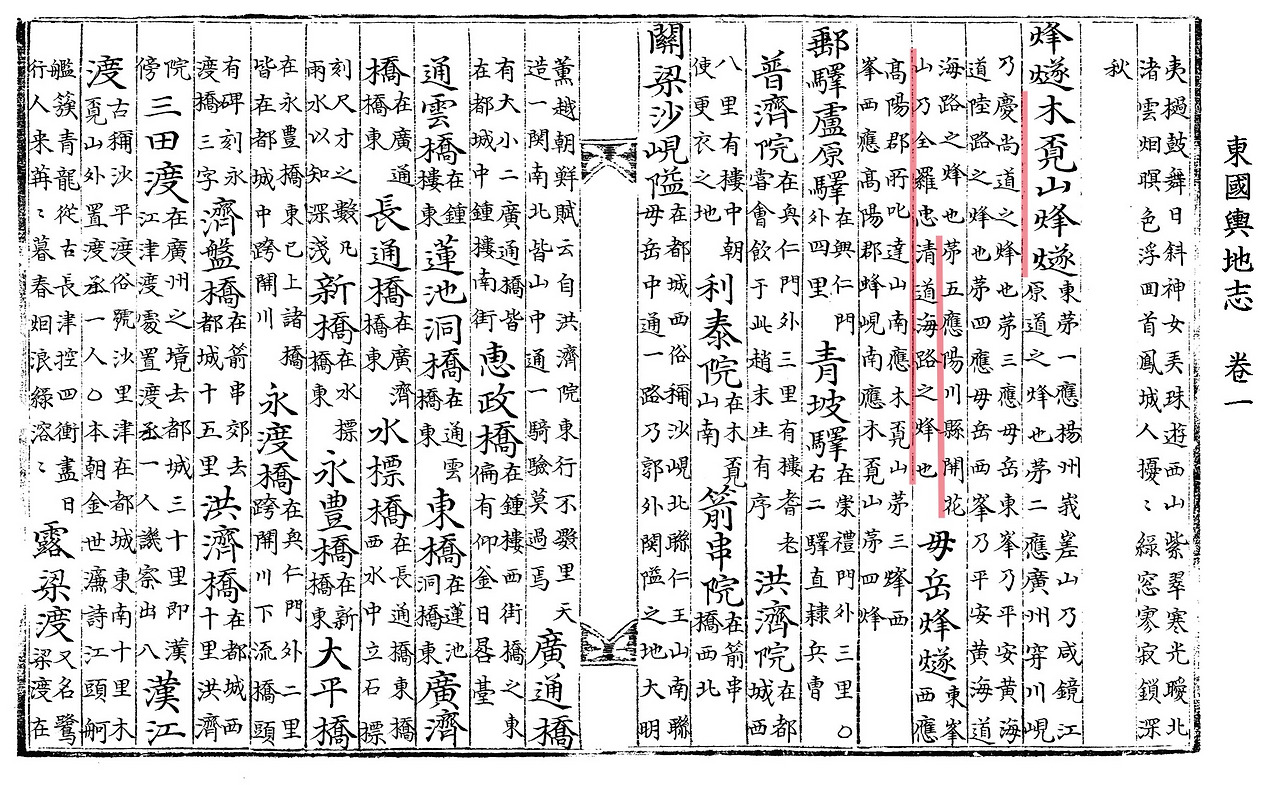 東國輿地志 卷一
夷檛鼓舞日斜神女弄珠遊西山紫翠寒光曖北
渚雲烟暝色浮回首鳳城人擾〻綠窓寥寂鎖深
秋
烽燧木覓山烽燧
東第一應揚州峩嵳山乃咸鏡江
原道之烽也第二應廣州穿川峴
乃慶尚道之烽也第三應毋岳東峯乃平安黄海
道陸路之烽也第四應毋岳西峯乃平安黄海道
海路之烽也第五應陽川縣開花
山乃全羅忠清道海路之烽也
毋岳烽燧
東峯
西應
髙陽郡所叱達山南應木覓山第三烽西
峯西應髙陽郡蜂峴南應木覓山第四烽
郵驛盧原驛
在興仁門
外四里
青坡驛
在崇禮門外三里○
右二驛直隷兵曹
普濟院
在興仁門外三里有樓耆老
嘗會飮于此趙末生有序
洪濟院
在都
城西
八里有樓中朝
使更衣之地
利泰院
在木覓
山南
箭串院
在箭串
橋西北
關梁沙峴隘
在都城西俗稱沙峴北聯仁王山南聯
毋岳中通一路乃郭外関隘之地大明
董越朝鮮賦云自洪濟院東行不數里天
造一関南北皆山中通一騎驗莫過焉
廣通橋
有大小二廣通橋皆
在都城中鍾樓南街
惠政橋
在鍾樓西街橋之東
偏有仰釜日晷臺
通雲橋
在鍾
樓東
蓮池洞橋
在通雲
橋東
東橋
在蓮池
洞橋東
廣濟
橋
在廣通
橋東
長通橋
在廣濟
橋東
水標橋
在長通橋東橋
西水中立石標
刻尺寸之數凡
兩水以知深淺
新橋
在水標
橋東
永豊橋
在新
橋東
大平橋
在永豊橋東已上諸橋
皆在都城中跨開川
永渡橋
在興仁門外二里
跨開川下流橋頭
有碑刻永
渡橋三字
濟盤橋
在箭串郊去
都城十五里
洪濟橋
在都城西
十里洪濟
院
傍
三田渡
在廣州之境去都城三十里即漢
江津渡處置渡丞一人譏察出入
漢江
渡
古稱沙平渡俗號沙里津在都城東南十里木
覓山外置渡丞一人○本朝金世濂詩江頭舸
艦簇青龍從古長津控四衝盡日
行人来苒〻暮春烟浪綠溶〻
露梁渡
又名鷺
梁渡在